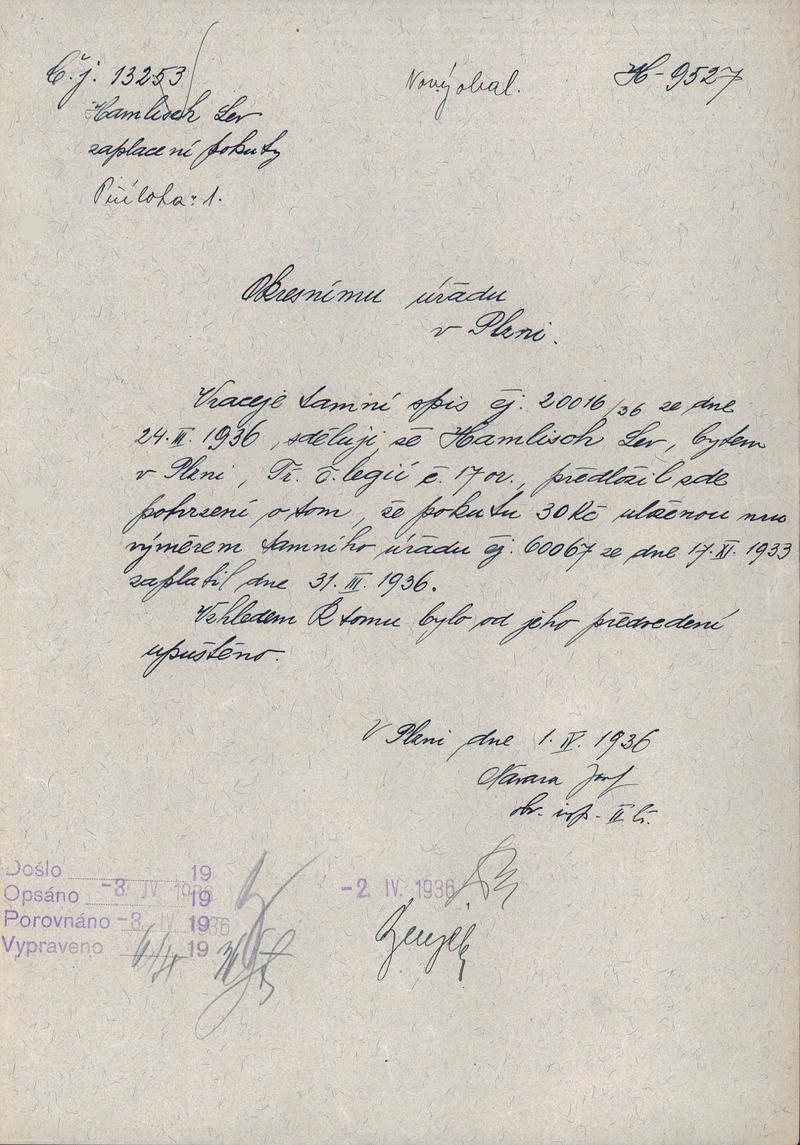 Č. j. 13253
Nový obal.
H-9527
Hamlisch Lev
zaplacení pokuty
Příloha: 1.
Okresnímu úřadu
v Plzni.
Vraceje tamní spis čj. 20016/36 ze dne
24. III. 1936, sděluji že Hamlisch Lev, bytem
v Plzni, Tř. č. legií č. 17 or., předložil zde
potvrzení o tom, že pokutu 30 Kč uloženou mu
výměrem tamního úřadu čj. 60067 ze dne 17. XI. 1933
zaplatil dne 31. III. 1936.
Vzhledem k tomu bylo od jeho předvedení
upuštěno.
V Plzni dne 1. IV. 1936
obv. insp. II tř.
Došlo 19
Opsáno -3. IV 1936 19
Porovnáno -3. IV 1936 19
Vypraveno 6/4 19
-2. IV. 1936